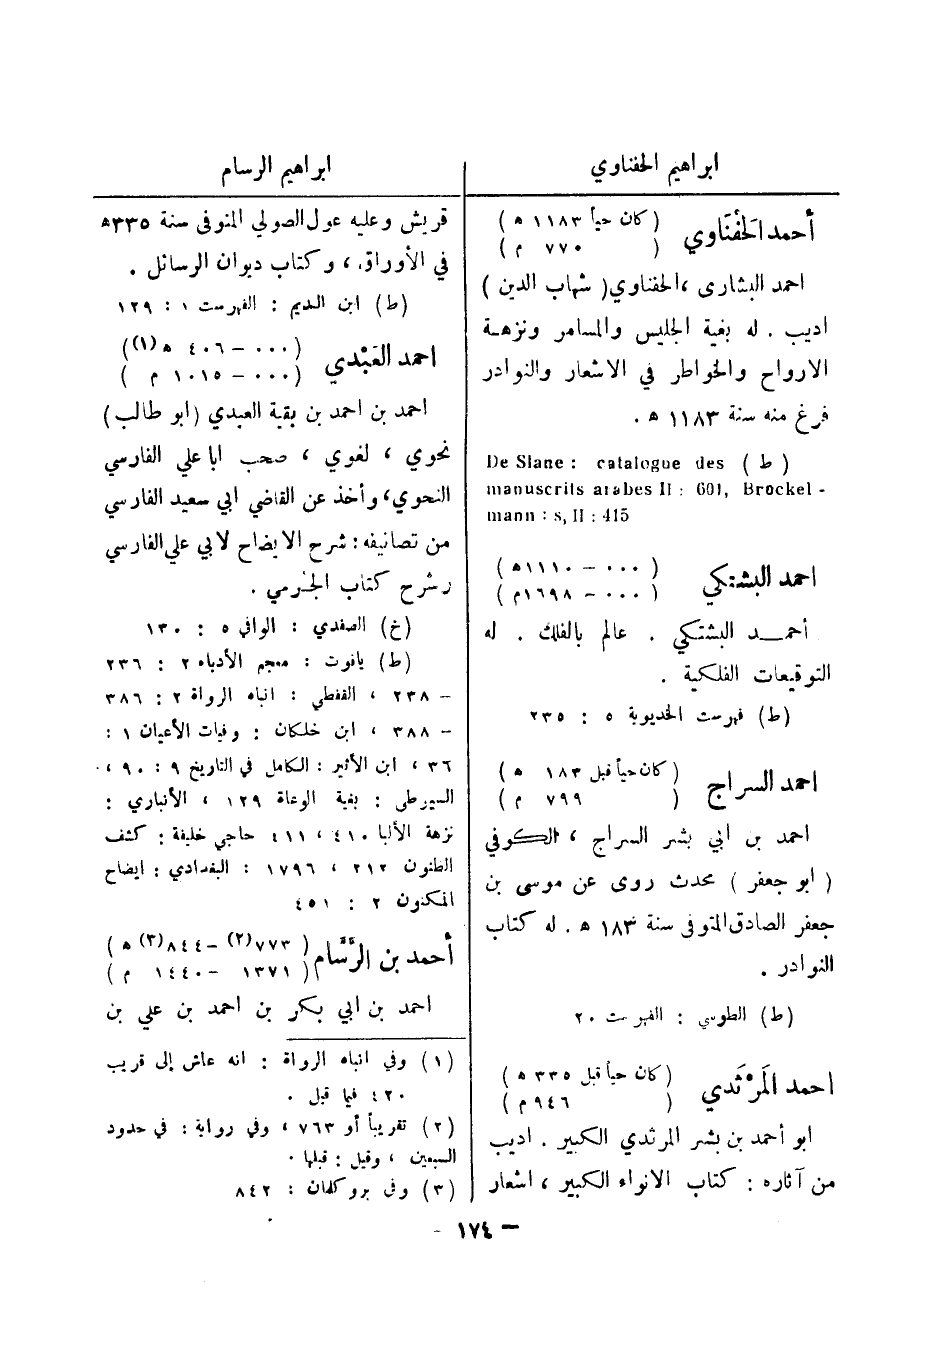 ابراهيم الحفناوي
أحمد الحَفْنَاوي ( كان حياً ١١٨٣ هـ )
( ٧٧٠ م )
احمد البشاري ، الحفناوي ( شهاب الدين )
اديب . له بغية الجليس والمسامر ونزهة
الارواح والخواطر في الاشعار والنوادر
فرغ منه سنة ١١٨٣ هـ .
( ط ) De Slane : catalogue des
manuscrits arabes II : 601, Brockel -
mann : s, II : 415
احمد البشتكي ( ٠٠٠ – ١١١٠ هـ )
( ٠٠٠ – ١٦٩٨ م )
أحمـد البشتكي . عالم بالفلك . له
التوقيعات الفلكية .
(ط) فهرست الخديوية ٥ : ٢٣٥
احمد السراج ( كان حياً قبل ١٨٣ هـ )
( ٧٩٩ م )
احمد بن ابي بشر السراج ، الكوفي
( ابو جعفر ) محدث روى عن موسى بن
جعفر الصادق المتوفى سنة ١٨٣ هـ . له كتاب
النوادر .
(ط) الطوسي : الفهرست ٢٠
احمد المَرْثَدي ( كان حياً قبل ٣٣٥ هـ )
( ٩٤٦ م )
ابو أحمد بن بشر المرثدي الكبير . اديب
من آثاره : كتاب الانواء الكبير ، اشعار
ابراهيم الرسام
قريش وعليه عول الصولي المتوفى سنة ٣٣٥ هـ
في الأوراق ، وكتاب ديوان الرسائل .
(ط) ابن النديم : الفهرست ١ : ١٢٩
احمد العَبْدي ( ٠٠٠ – ٤٠٦ هـ (١) )
( ٠٠٠ – ١٠١٥ م )
احمد بن احمد بن بقية العبدي (ابو طالب)
نحوي ، لغوي ، صحب ابا علي الفارسي
النحوي ، وأخذ عن القاضي ابي سعيد الفارسي
من تصانيفه : شرح الايضاح لابي علي الفارسي
رشرح كتاب الجرمي .
(خ) الصفدي : الوافي ٥ : ١٣٠
(ط) ياقوت : معجم الأدباء ٢ : ٢٣٦
– ٢٣٨ ، القفطي : انباه الرواة ٢ : ٣٨٦
– ٣٨٨ ، ابن خلكان : وفيات الأعيان ١ :
٣٦ ، ابن الأثير : الكامل في التاريخ ٩ : ٩٠ ،
السيوطي : بغية الوعاة ١٢٩ ، الأنباري :
نزهة الألبا ٤١٠ ، ٤١١ حاجي خليفة : كشف
الظنون ٢١٢ ، ١٧٩٦ : البغدادي : ايضاح
المكنون ٢ : ٤٥١
أحمد بن الرَّسَّام ( ٧٧٣ (٢) – ٨٤٤ (٣) هـ )
( ١٣٧١ – ١٤٤٠ م )
احمد بن ابي بكر بن احمد بن علي بن
(١) وفي انباه الرواة : انه عاش إلى قريب
٤٢٠ فيما قبل .
(٢) تقريباً أو ٧٦٣ ، وفي رواية : في حدود
السبعين ، وقيل : قبلها .
(٣) وفي بروكلمان : ٨٤٢
– ١٧٤ –